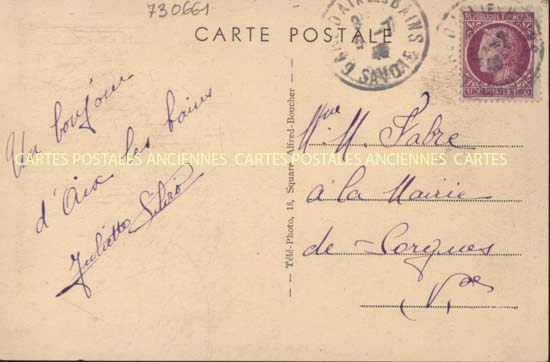 730661
CARTE POSTALE
GARE D'AIX LES BAINS
SAVOIE
POSTES
Un bonjour
d'Aix les bains
Juliette
CARTES POSTALES ANCIENNES CARTES POSTALES ANCIENNES CARTES
Télé-Photo, 18, Square Alfred-Boucher
M. Fabre
à la Mairie
de Lorgues